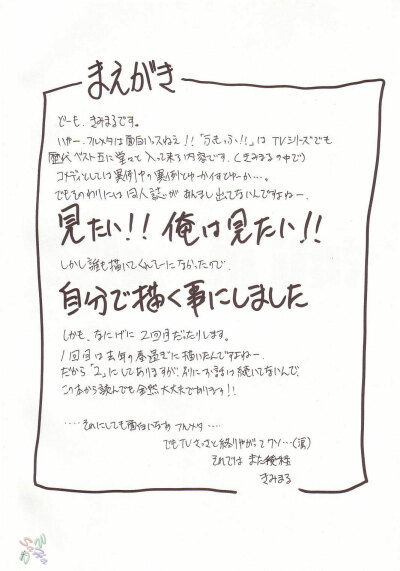 まえがき
どーも、きみまるです。
いやー、フルメタは面白いっスねえ!!「ふもっふ!!」はTVシリーズでも
歴代ベスト五に堂々と入って来る内容です。(きみまるの中で)
コメディとしては異例中の異例とゆーかイチとゆーか…。
でもそのわりには同人誌があんまし出てないんですよねー。
見たい!! 俺は見たい!!
しかし誰も描いてくれそーになかったので、
自分で描く事にしました
しかも、なにげに2回目だったりします。
1回目は去年の春過ぎに描いたんですよねー
だから「2」にしてありますが、別にお話は続いてないんで、
この本から読んでも全然大丈夫であります!!
……それにしても面白いなあ フルメタ……
でもTVさっさと終りやがって クソ…(涙)
それでは また後程
きみまる